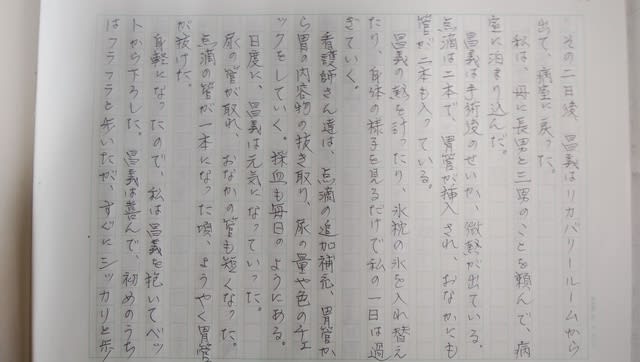 その二日後、昌義はリカバリールームから
出て、病室に戻った。
私は、母に長男と三男のことを頼んで、病
室に泊まり込んだ。
昌義は手術後のせいか、微熱が出ている。
点滴は二本で、胃管が挿入され、おなかにも
管が二本も入っている。
昌義の熱を計ったり、氷枕の氷を入れ替え
たり、身体の様子を見るだけで私の一日は過
ぎていく。
看護師さん達は、点滴の追加補充、胃管か
ら胃の内容物の抜き取り、尿の量や色のチェ
ックをしていく。採血も毎日のようにある。
日度に、昌義は元気になっていった。
尿の管が取れ、おなかの管も短くなった。
点滴の管が一本になった頃、ようやく胃管
が抜けた。
身軽になったので、私は昌義を抱いてベッ
トから下ろした。昌義は喜んで、初めのうち
はフラフラと歩いたが、すぐにシッカリと歩